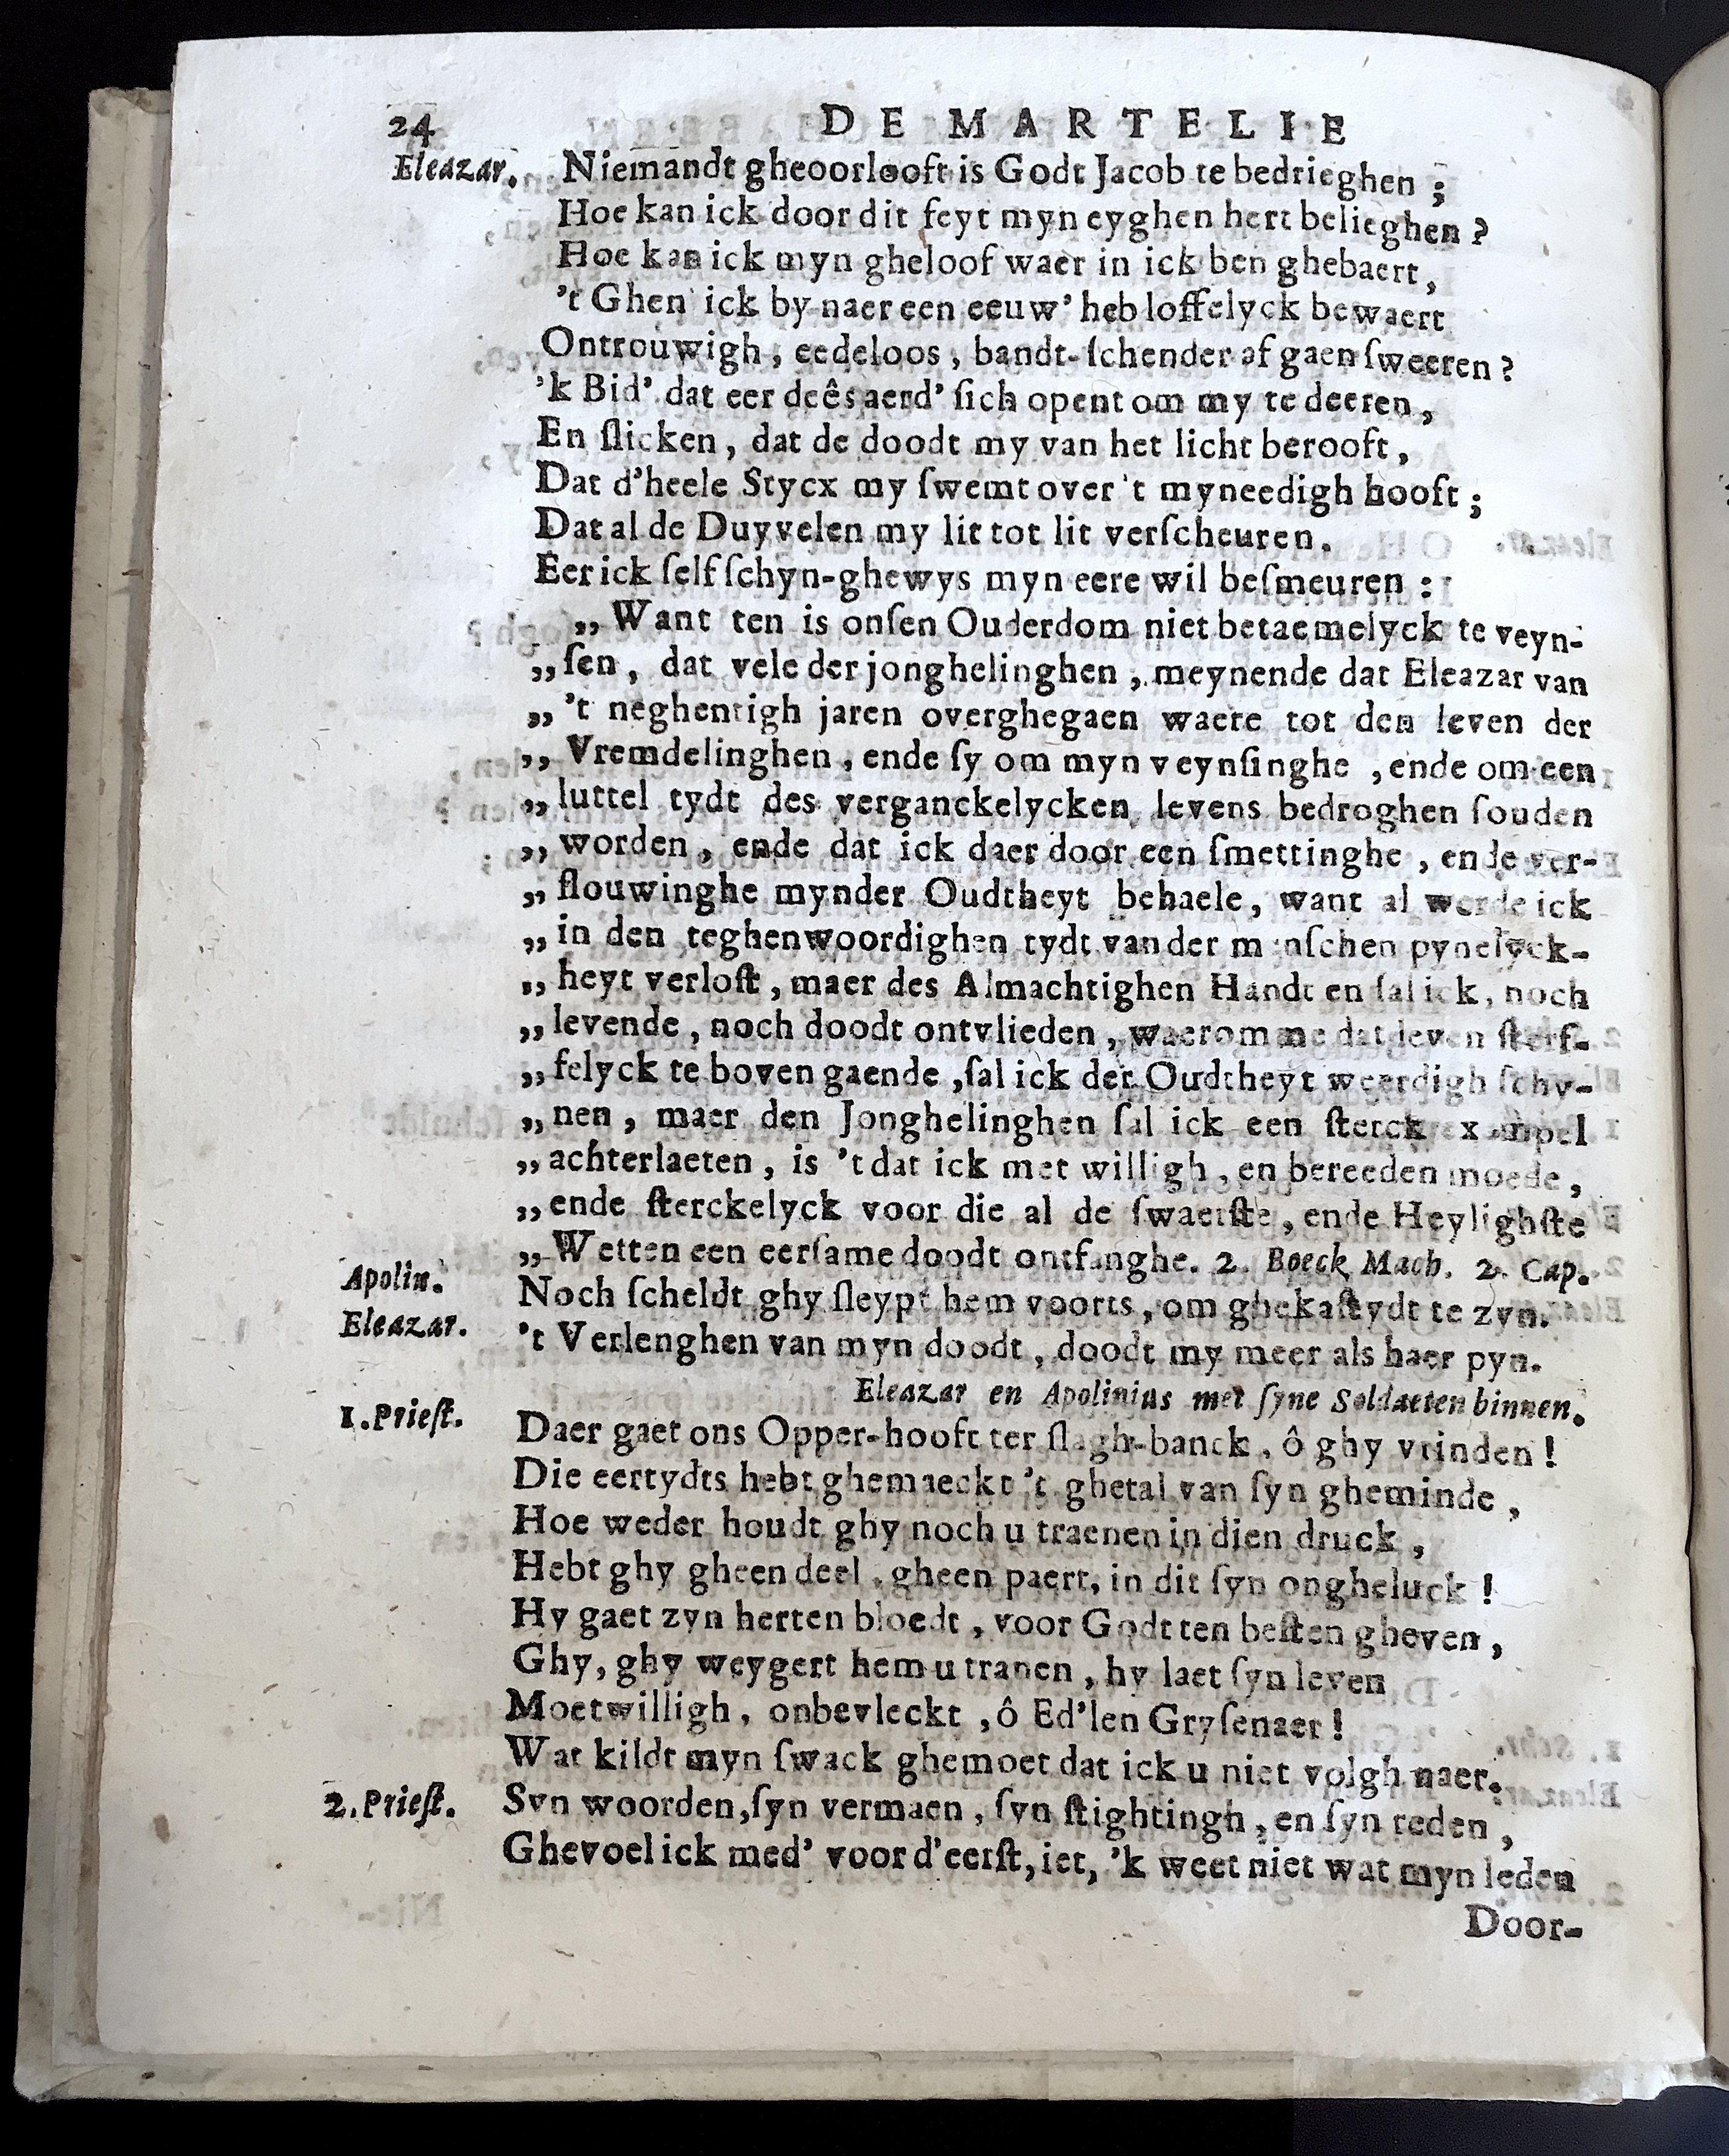 24 DE MARTELIE
Eleazar. Niemandt gheoorlooft is Godt Jacob te bedrieghen ;
Hoe kan ick door dit feyt myn eyghen hert belieghen ?
Hoe kan ick myn gheloof waer in ick ben ghebaert,
't Ghen ick by naer een eeuw' heb loffelyck bewaert
Ontrouwigh, eedeloos, bandt-ſchender af gaen ſweeren ?
'k Bid' dat eer deês aerd' ſich opent om my te deeren,
En ſlicken, dat de doodt my van het licht berooft,
Dat d'heele Stycx my ſwemt over 't myneedigh hooft ;
Dat al de Duyvelen my lit tot lit verſcheuren.
Eer ick ſelf ſchyn-ghewys myn eere wil beſmeuren :
„ Want ten is onſen Ouderdom niet betaemelyck te veyn-
„ ſen, dat vele der jonghelinghen, meynende dat Eleazar van
„ 't neghentigh jaren overghegaen waere tot den leven der
„ Vremdelinghen, ende ſy om myn veynſinghe, ende om een
„ luttel tydt des verganckelycken levens bedroghen ſouden
„ worden, ende dat ick daer door een ſmettinghe, ende ver-
„ flouwinghe mynder Oudtheyt behaele, want al werde ick
„ in den teghenwoordighen tydt van der menſchen pynelyck-
„ heyt verloſt, maer des Almachtighen Handt en ſal ick, noch
„ levende, noch doodt ontvlieden, waeromme dat leven ſterf-
„ felyck te boven gaende, ſal ick der Oudtheyt weerdigh ſchy-
„ nen, maer den Jonghelinghen ſal ick een ſterck exempel
„ achterlaeten, is 't dat ick met willigh, en bereeden moede,
„ ende ſterckelyck voor die al de ſwaerſte, ende Heylighſte
„ Wetten een eerſame doodt ontfanghe. 2. Boeck Mach. 2. Cap.
Apolin. Noch ſcheldt ghy ſleypt hem voorts, om ghekaſtydt te zyn.
Eleazar. 't Verlenghen van myn doodt, doodt my meer als haer pyn.
Eleazar en Apolinius met ſyne Soldaeten binnen.
1. Prieſt. Daer gaet ons Opper-hooft ter ſlagh-banck, ô ghy vrinden !
Die eertydts hebt ghemaeckt 't ghetal van ſyn gheminde,
Hoe weder houdt ghy noch u traenen in dien druck,
Hebt ghy gheen deel, gheen paert, in dit ſyn ongheluck !
Hy gaet zyn herten bloedt, voor Godt ten beſten gheven,
Ghy, ghy weygert hem u tranen, hy laet ſyn leven
Moetwilligh, onbevleckt, ô Ed'len Gryſenaer !
Wat kildt myn ſwack ghemoet dat ick u niet volgh naer.
2. Prieſt. Syn woorden, ſyn vermaen, ſyn ſtightingh, en ſyn reden,
Ghevoel ick med' voor d'eerſt, iet, 'k weet niet wat myn leden
Door-